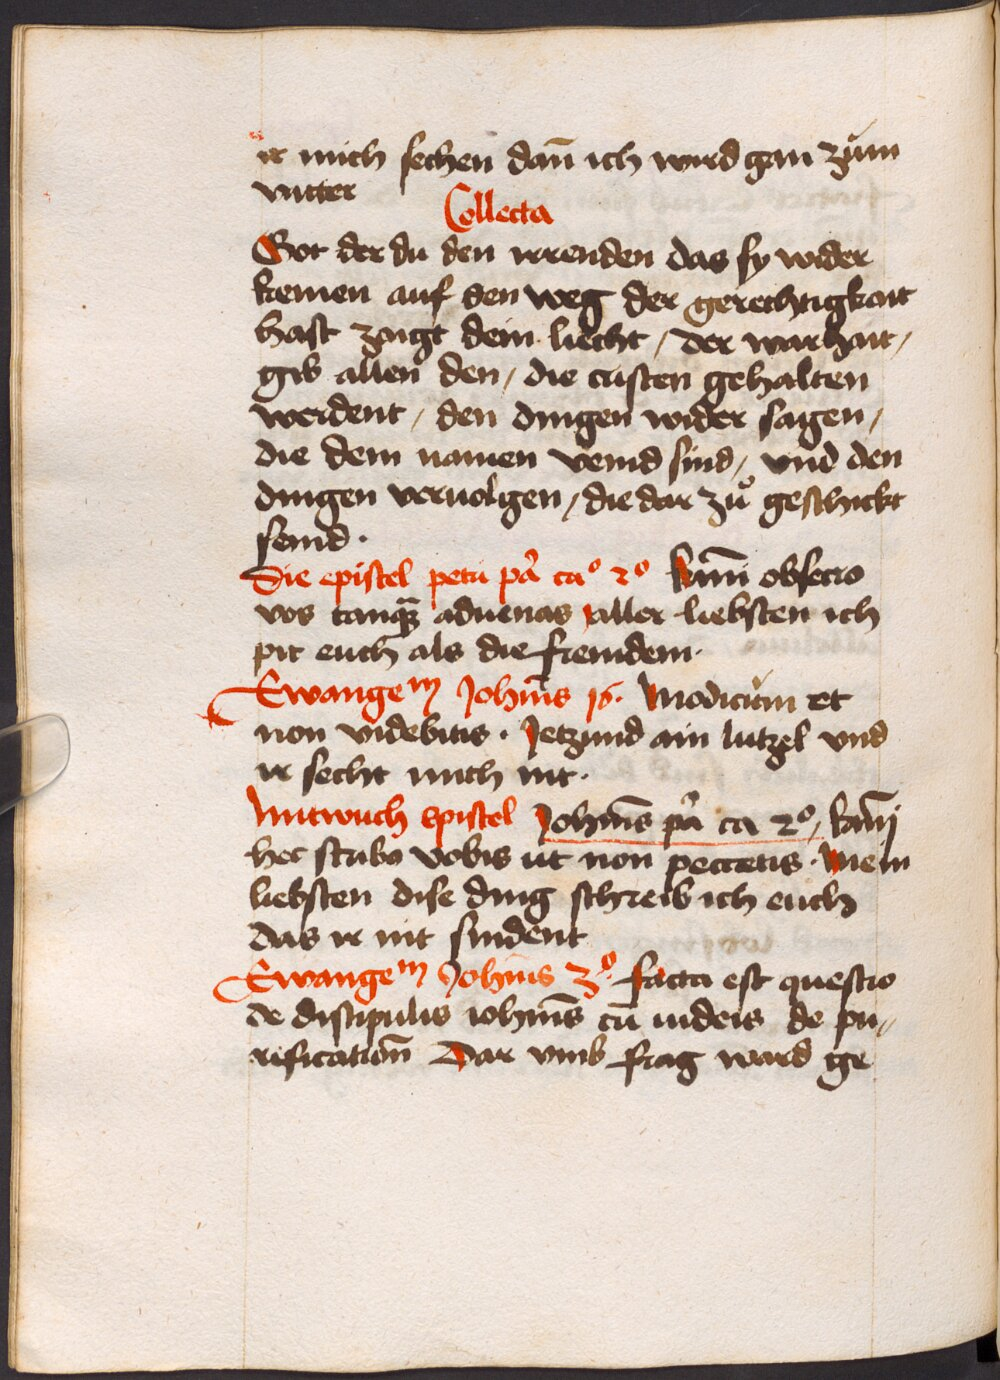 ir mich sechen dañ ich wird gan zům
vatter
Collecta
Got der du den irrenden das sy wider
kemen auf den weg der gerechtigkait
hast zaigt dein liecht / der warhait /
gib allen den / die cristen gehalten
werdent / den dingen wider sagen /
die dem namen veind sind / vnd den
dingen veruolgen / die dar zů geschickt
seind ·
Die epistel petri pã ca° 2° kar̃mi obsecro
vos tanqꝫ aduenas aller liebsten ich
pit euch als die fremdem ·
Ewangeͫ Joh̃nis 16 · Modicum et
non videbitis · Jetzund ain lutzel vnd
ir secht mich nit ·
Mitwuch epistel Joh̃nis pã ca 2° / kar̃mi
hec scribo vobis ut non peccetis · Mein
liebsten dise ding schreib ich euch
das ir nit sindent
Ewangeͫ Joh̃nis 3° · facta est questio
de discipulis ioh̃nis cũ iudeis de pu⸗
rification̄ Dar vmb frag ward ge